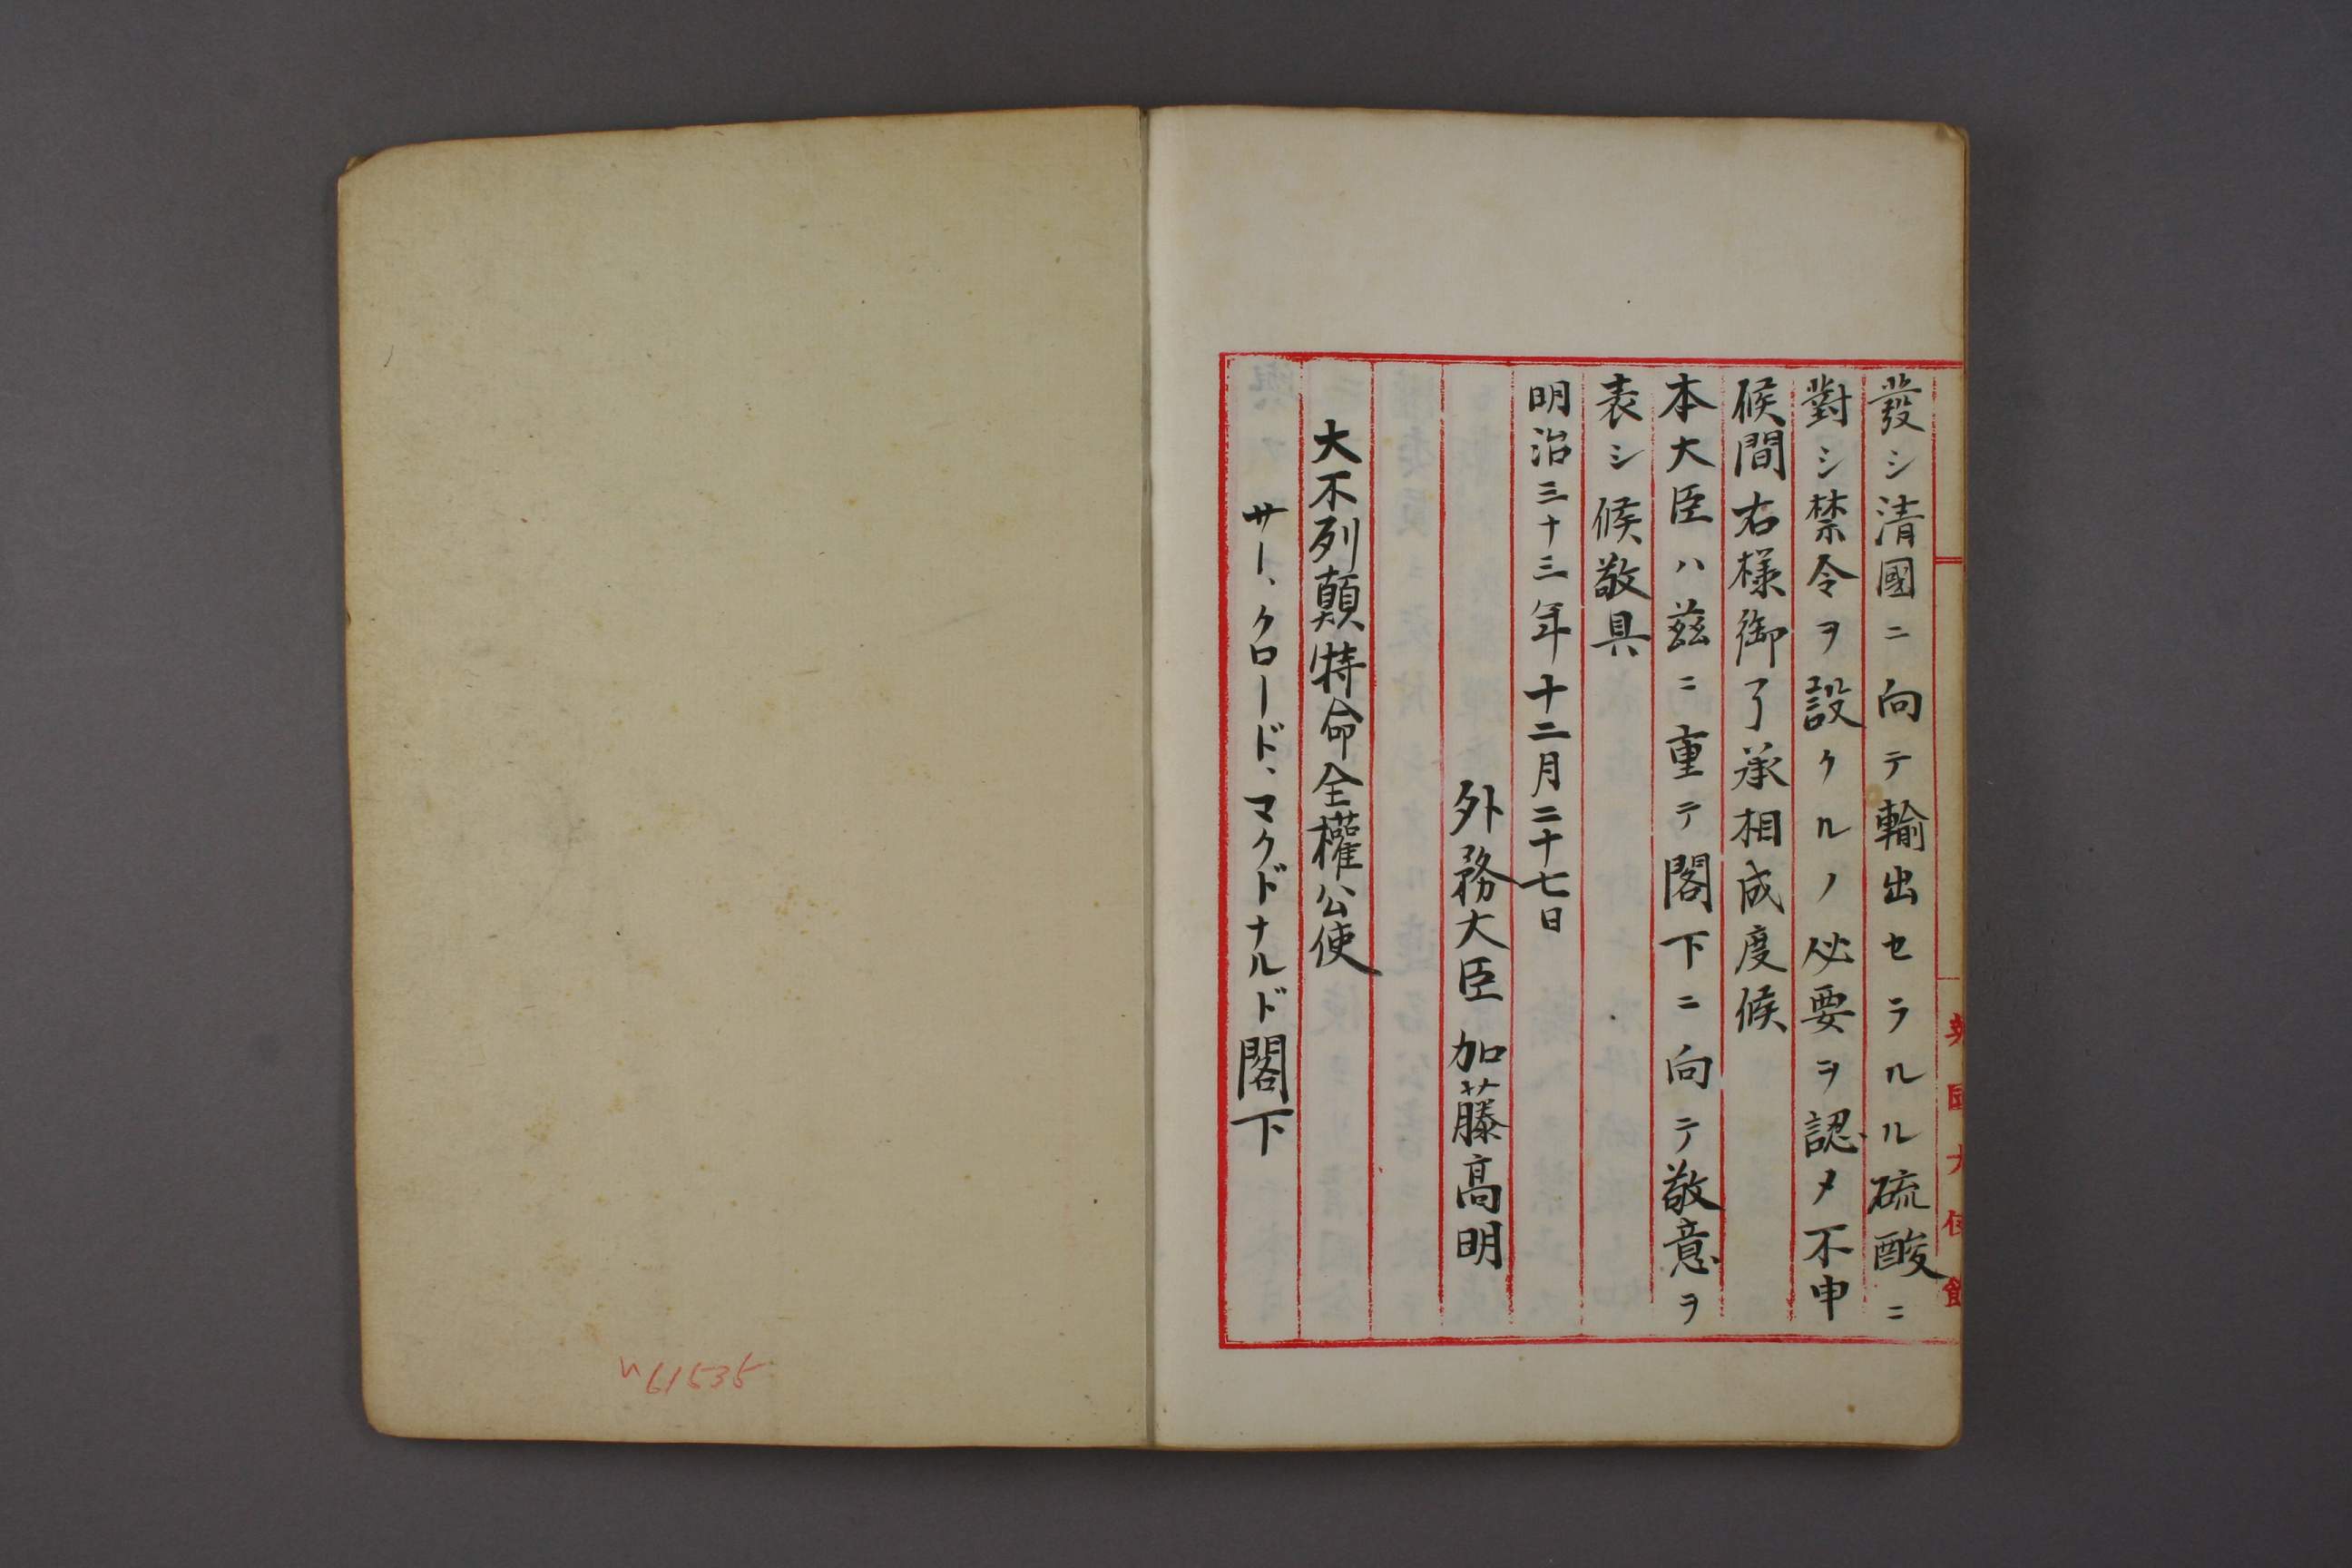 發シ清國ニ向テ輸出セラルル硫酸ニ
對シ禁令ヲ設クルノ必要ヲ認メ不申
候間右様御了承相成度候
本大臣ハ茲ニ重テ閣下ニ向テ敬意ヲ
表シ候敬具
明治三十三年十二月二十七日
外務大臣 加藤高明
大不列顛特命全權公使
サー、クロード、マクドナルド閣下
英國大使館
n61535